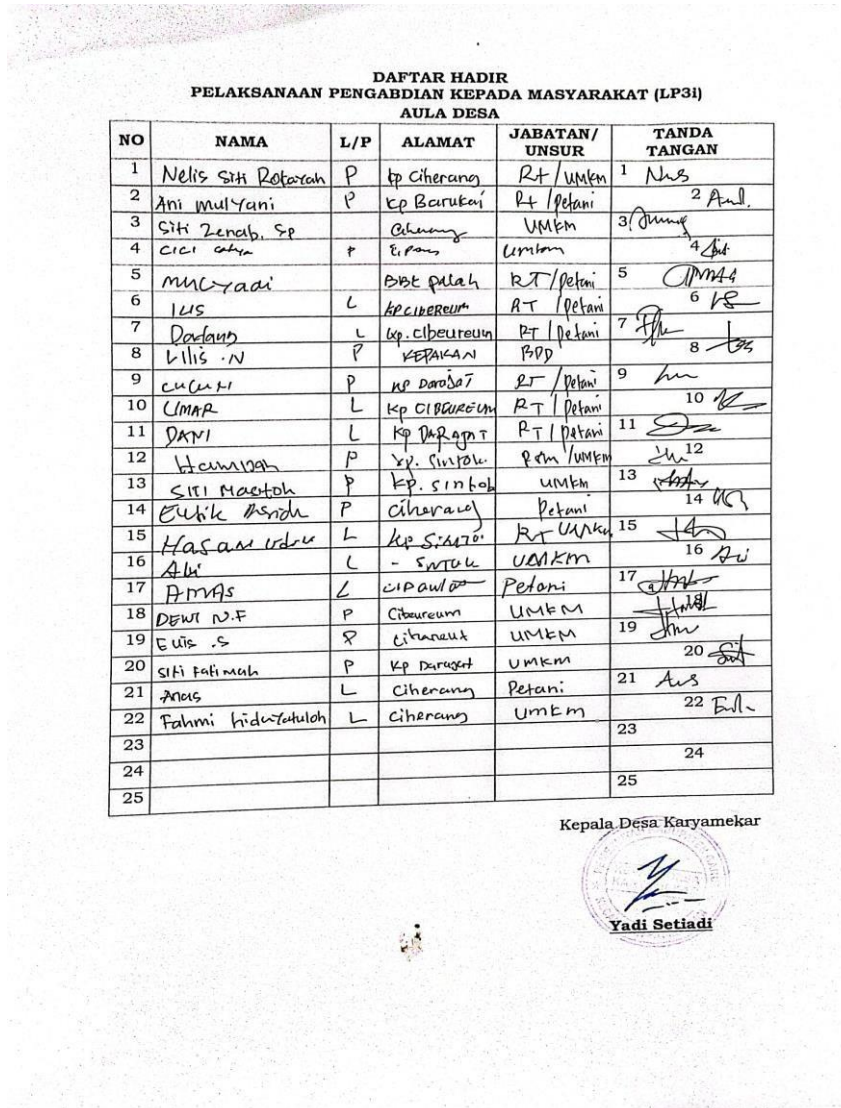 DAFTAR HADIR
PELAKSANAAN PENGABDIAN KEPADA MASYARAKAT (LP3i)
AULA DESA
NO NAMA L/P ALAMAT JABATAN/ UNSUR TANDA TANGAN
1 Nelis Siti P kp Ciherang Rt/UMKM 1
2 Ani mulyani P kp Barukai Rt/petani 2
3 Siti Zenab, Sp Ciherang UMKM 3
4 CICI P umkm 4
5 mulyadi BBK palah RT/petani 5
6 IUS L KP CIBEREUM RT/petani 6
7 Dadang L kp. Cibeureum RT/petani 7
8 Lilis .N P KEPAKAN BPD 8
9 cucu N P kp Darajat RT/petani 9
10 UMAR L Kp CIBEUREUM RT/petani 10
11 DANI L Kp DARAJAT RT/petani 11
12 P kp. /UMKM 12
13 SITI Mastoh P kp. sintok UMKM 13
14 P Ciherang Petani 14
15 Hasan L kp RT 15
16 L - UMKM 16
17 AMAS L Petani 17
18 DEWI N.F P Cibeureum UMKM 18
19 Euis .S P UMKM 19
20 Siti Fatimah P Kp Darajat umkm 20
21 Anas L Ciherang Petani 21
22 Fahmi hidayatuloh L Ciherang umkm 22
23 23
24 24
25 25
Kepala Desa Karyamekar
Yadi Setiadi